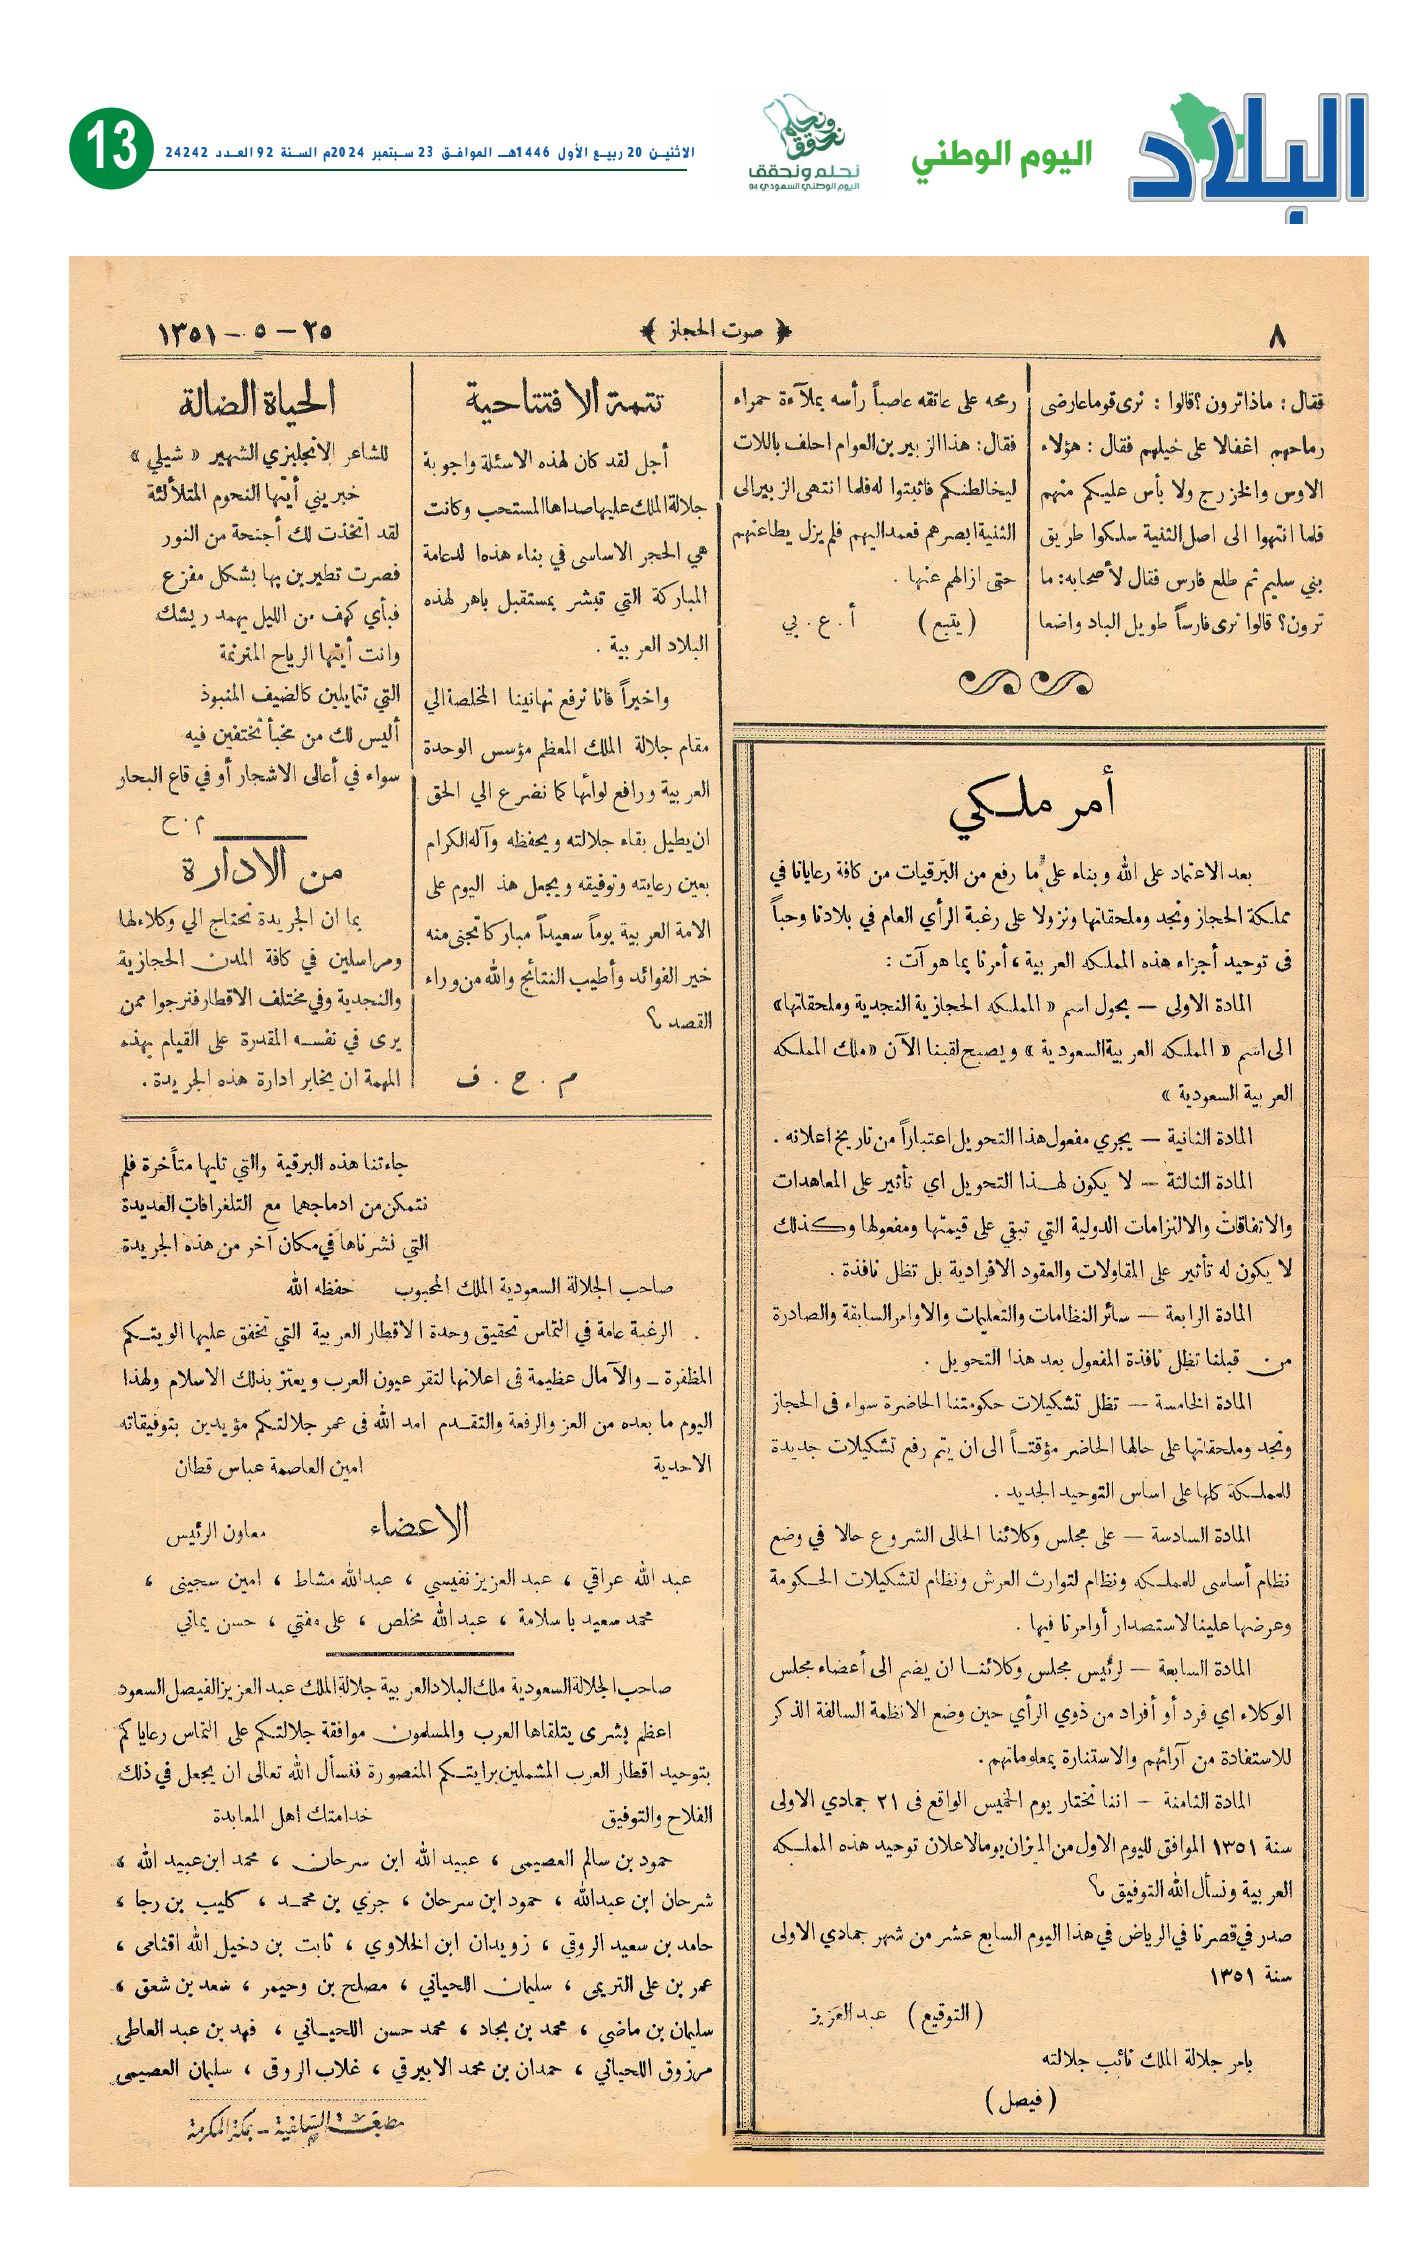 البلاد
اليوم الوطني
نحلم ونحقق
نحلم ونحقق
اليوم الوطني السعودي 94
الاثنين 20 ربيع الأول 1446هـ الموافق 23 سبتمبر 2024م السنة 92 العدد 24242
13
٨
﴿ صوت الحجاز ﴾
٢٥ – ٥ – ١٣٥١
فقال : ماذا ترون ؟ قالوا : نرى قوما عارضى
رماحهم اغفالا على خيلهم فقال : هؤلاء
الاوس والخزرج ولا بأس عليكم منهم
فلما انتهوا الى اصل الثنية سلكوا طريق
بني سليم ثم طلع فارس فقال لأصحابه : ما
ترون؟ قالوا نرى فارساً طويل الباد واضعا
رمحه على عاتقه عاصباً رأسه بملآءة حمراء
فقال : هذا الزبير بن العوام احلف باللات
ليخالطنكم فاثبتوا له فلما انتهى الزبير الى
الثنية ابصرهم فعمد اليهم فلم يزل يطاعنهم
حتى ازالهم عنها .
( يتبع ) أ . ع . بي
أمر ملكي
بعد الاعتماد على الله وبناء على ما رفع من البرقيات من كافة رعايانا في
مملكة الحجاز ونجد وملحقاتها ونزولا على رغبة الرأي العام في بلادنا وحباً
فى توحيد أجزاء هذه المملكه العربية ، أمرنا بما هو آت :
المادة الاولى — يحول اسم « المملكه الحجازية النجدية وملحقاتها»
الى اسم « المملكه العربية السعودية » ويصبح لقبنا الآن «ملك المملكه
العربية السعودية »
المادة الثانية — يجري مفعول هذا التحويل اعتباراً من تاريخ اعلانه .
المادة الثالثة — لا يكون لهذا التحويل اي تأثير على المعاهدات
والاتفاقات والالتزامات الدولية التي تبقي على قيمتها ومفعولها وكذلك
لا يكون له تأثير على المقاولات والعقود الافرادية بل تظل نافذة .
المادة الرابعة — سائر النظامات والتعليمات والاوامر السابقة والصادرة
من قبلنا تظل نافذة المفعول بعد هذا التحويل .
المادة الخامسة — تظل تشكيلات حكومتنا الحاضرة سواء فى الحجاز
ونجد وملحقاتها على حالها الحاضر مؤقتاً الى ان يتم رفع تشكيلات جديدة
للمملكة كلها على اساس التوحيد الجديد .
المادة السادسة — على مجلس وكلائنا الحالى الشروع حالا في وضع
نظام أساسى للمملكه ونظام لتوارث العرش ونظام لتشكيلات الحكومة
وعرضها علينا لاستصدار أوامرنا فيها .
المادة السابعة — لرئيس مجلس وكلائنا ان يضم الى أعضاء مجلس
الوكلاء اي فرد أو أفراد من ذوي الرأي حين وضع الانظمة السالفة الذكر
للاستفادة من آرائهم والاستنارة بمعلوماتهم .
المادة الثامنة — اننا نختار يوم الخميس الواقع فى ٢١ جمادي الاولى
سنة ١٣٥١ الموافق لليوم الاول من الميزان يوما لاعلان توحيد هذه المملكه
العربية ونسأل الله التوفيق ؟
صدر في قصرنا في الرياض في هذا اليوم السابع عشر من شهر جمادي الاولى
سنة ١٣٥١
( التوقيع ) عبد العزيز
بامر جلالة الملك نائب جلالته
( فيصل )
تتمة الافتتاحية
أجل لقد كان لهذه الاسئلة واجوبة
جلالة الملك عليها صداها المستحب وكانت
هي الحجر الاساسى في بناء هذه الدعامة
المباركة التي تبشر بمستقبل باهر لهذه
البلاد العربية .
واخيراً فانا نرفع تهانينا المخلصة الي
مقام جلالة الملك المعظم مؤسس الوحدة
العربية ورافع لوائها كما نضرع الي الحق
ان يطيل بقاء جلالته ويحفظه وآله الكرام
بعين رعايته وتوفيقه ويجعل هذ اليوم على
الامة العربية يوماً سعيداً مباركا تجنى منه
خير الفوائد وأطيب النتائج والله من وراء
القصد ؟
م . ح . ف
الحياة الضالة
للشاعر الانجليزي الشهير « شيلي »
خبريني أيتها النحوم المتلألئة
لقد اتخذت لك أجنحة من النور
فصرت تطيرين بها بشكل مفزع
فبأي كهف من الليل يهمد ريشك
وانت أيتها الرياح المترنمة
التي تتمايلين كالضيف المنبوذ
أليس لك من مخبأ تختفين فيه
سواء في أعالى الاشجار أو في قاع البحار
م . ح
من الادارة
بما ان الجريدة تحتاج الي وكلاء لها
ومراسلين في كافة المدن الحجازية
والنجدية وفي مختلف الاقطار فنرجوا ممن
يرى في نفسه المقدرة على القيام بهذه
المهمة ان يخابر ادارة هذه الجريدة .
جاءتنا هذه البرقية والتي تليها متأخرة فلم
نتمكن من ادماجهما مع التلغرافات العديدة
التي نشرناها في مكان آخر من هذه الجريدة
صاحب الجلالة السعودية الملك المحبوب حفظه الله
الرغبة عامة في التماس تحقيق وحدة الاقطار العربية التي تخفق عليها الويتكم
المظفرة – والآمال عظيمة فى اعلانها لتقر عيون العرب ويعتز بذلك الاسلام ولهذا
اليوم ما بعده من العز والرفعة والتقدم امد الله فى عمر جلالتكم مؤيدين بتوفيقاته
الاحدية امين العاصمة عباس قطان
الاعضاء معاون الرئيس
عبد الله عراقي ، عبد العزيز نفيسي ، عبدالله مشاط ، امين سجينى ،
محمد سعيد با سلامة ، عبد الله مخلص ، على مفتي ، حسن يماني
صاحب الجلالة السعودية ملك البلاد العربية جلالة الملك عبد العزيز الفيصل السعود
اعظم بشرى يتلقاها العرب والمسلمون موافقة جلالتكم على التماس رعاياكم
بتوحيد اقطار العرب المشملين برايتكم المنصورة فنسأل الله تعالى ان يجعل في ذلك
الفلاح والتوفيق خدامتك اهل المعابدة
حمود بن سالم العصيمى ، عبيد الله ابن سرحان ، محمد ابن عبيد الله ،
شرحان ابن عبدالله ، حمود ابن سرحان ، جزي بن محمد ، كليب بن رجا ،
حامد بن سعيد الروقي ، زويدان ابن الخلاوي ، ثابت بن دخيل الله اقثامى ،
عمر بن على التريمى ، سليمان اللحياني ، مصلح بن وحيمر ، سعد بن شعق ،
سليمان بن ماضي ، محمد بن بجاد ، محمد حسن اللحياني ، فهد بن عبد العاطى
مرزوق اللحياني ، حمدان بن محمد الابيرقي ، غلاب الروقى ، سليمان العصيمى
مطبعة السلفية – بمكة المكرمة